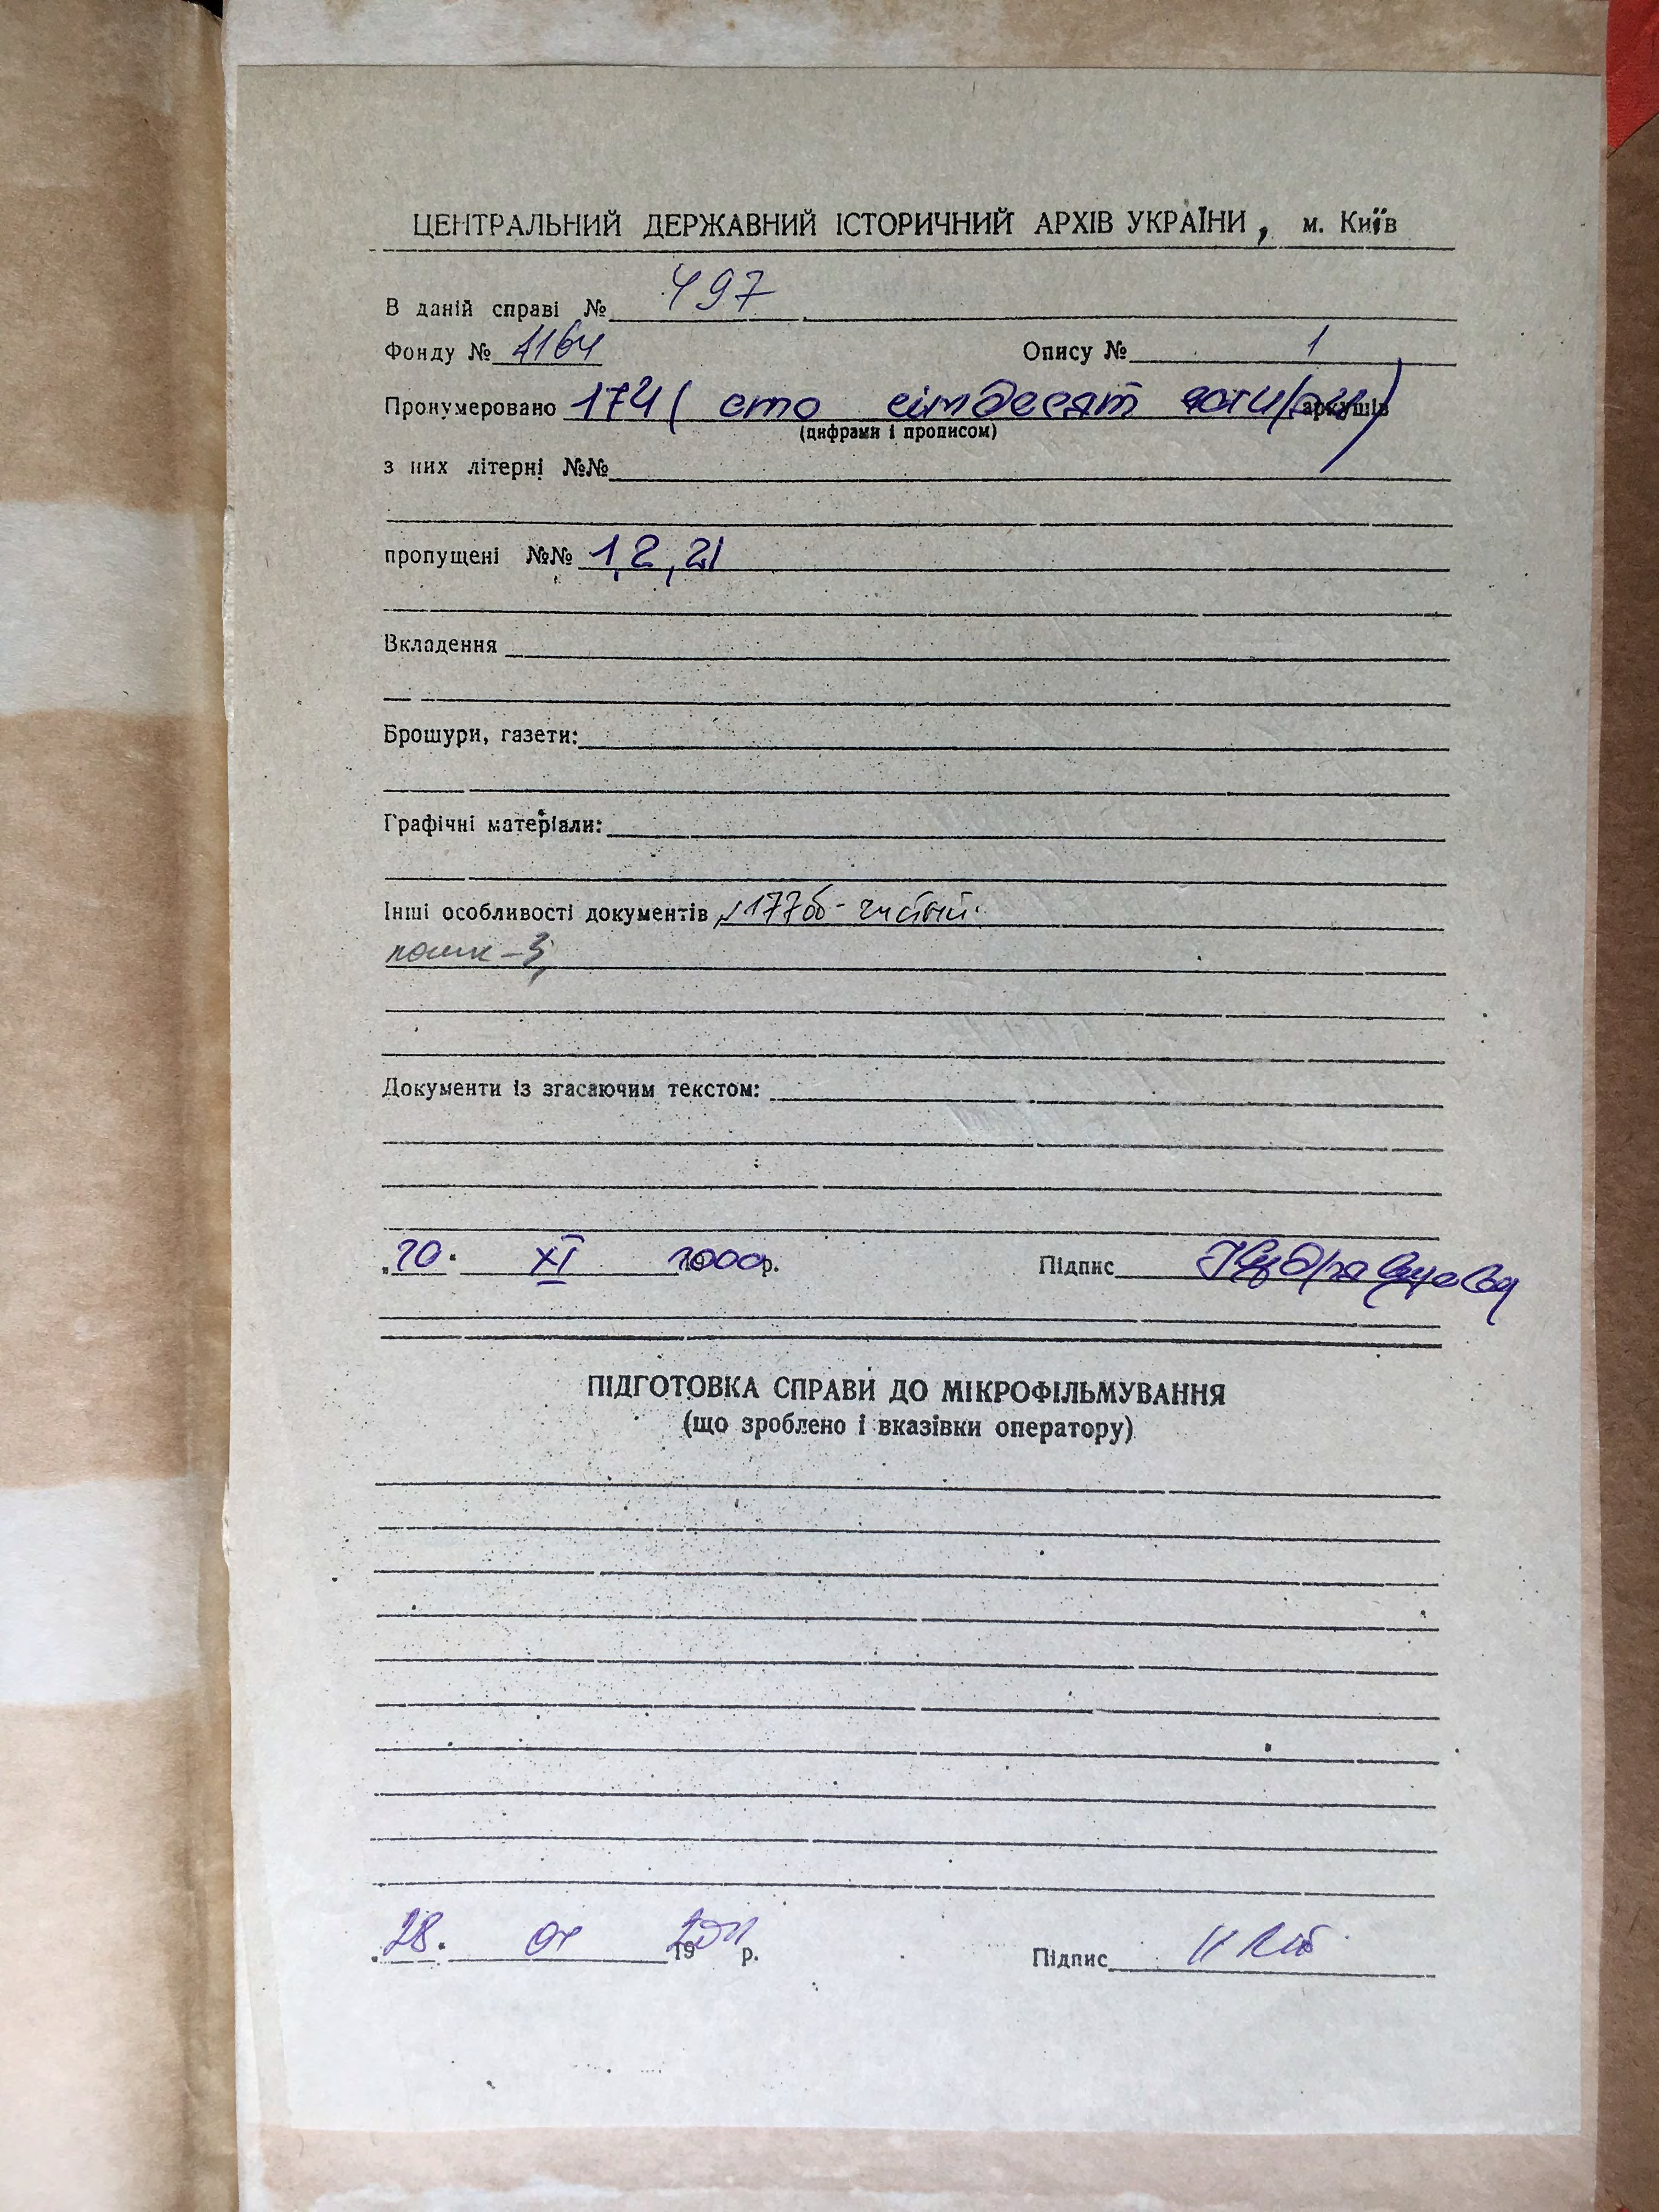 ЦЕНТРАЛЬНИЙ ДЕРЖАВНИЙ ІСТОРИЧНИЙ АРХІВ УКРАЇНИ, м. Київ
В даній справі № 497
Фонду № 1164 Опису № 1
Пронумеровано 174 (сто сімдесят чотири) аркушів
(цифрами і прописом)
з них літерні №№
пропущені №№ 1, 2, 21
Вкладення
Брошури, газети:
Графічні матеріали:
Інші особливості документів 177об - чистий.
пошк - 3,
Документи із згасаючим текстом:
„20." XI 2000р. Підпис
ПІДГОТОВКА СПРАВИ ДО МІКРОФІЛЬМУВАННЯ
(що зроблено і вказівки оператору)
„28." 19 р. Підпис